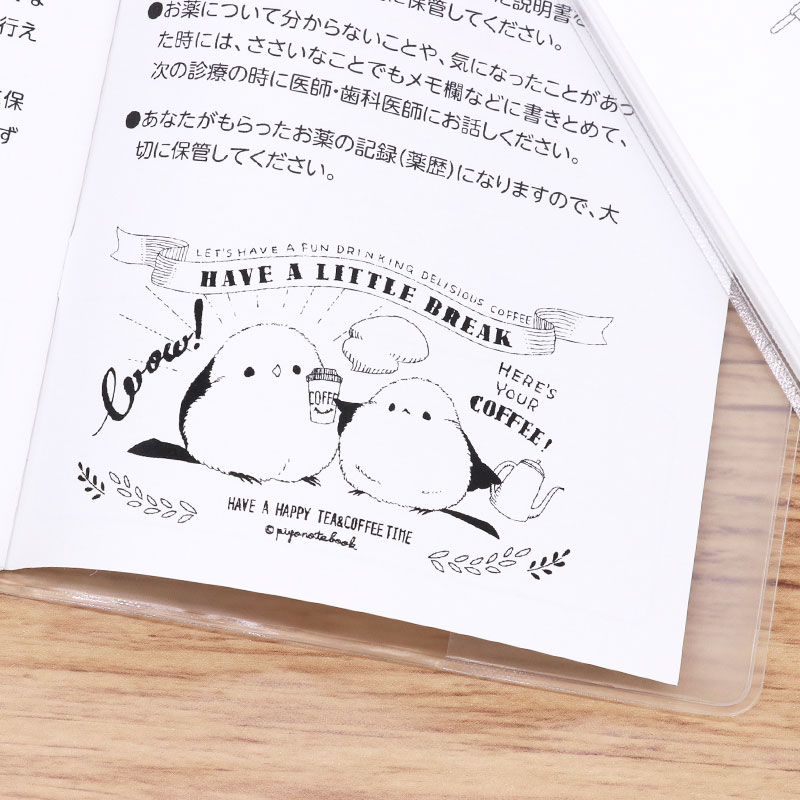 な
行え
保
ず
に説明書を
に保管してください。
●お薬について分からないことや、気になったことがあっ
た時には、ささいなことでもメモ欄などに書きとめて、
次の診療の時に医師・歯科医師にお話しください。
●あなたがもらったお薬の記録(薬歴)になりますので、大
切に保管してください。
LET'S HAVE A FUN DRINKING DELISIOUS COFFEE
HAVE A LITTLE BREAK
Wow!
COFFE
HERE'S
YOUR
COFFEE!
HAVE A HAPPY TEA&COFFEE TIME
©piyonotebook